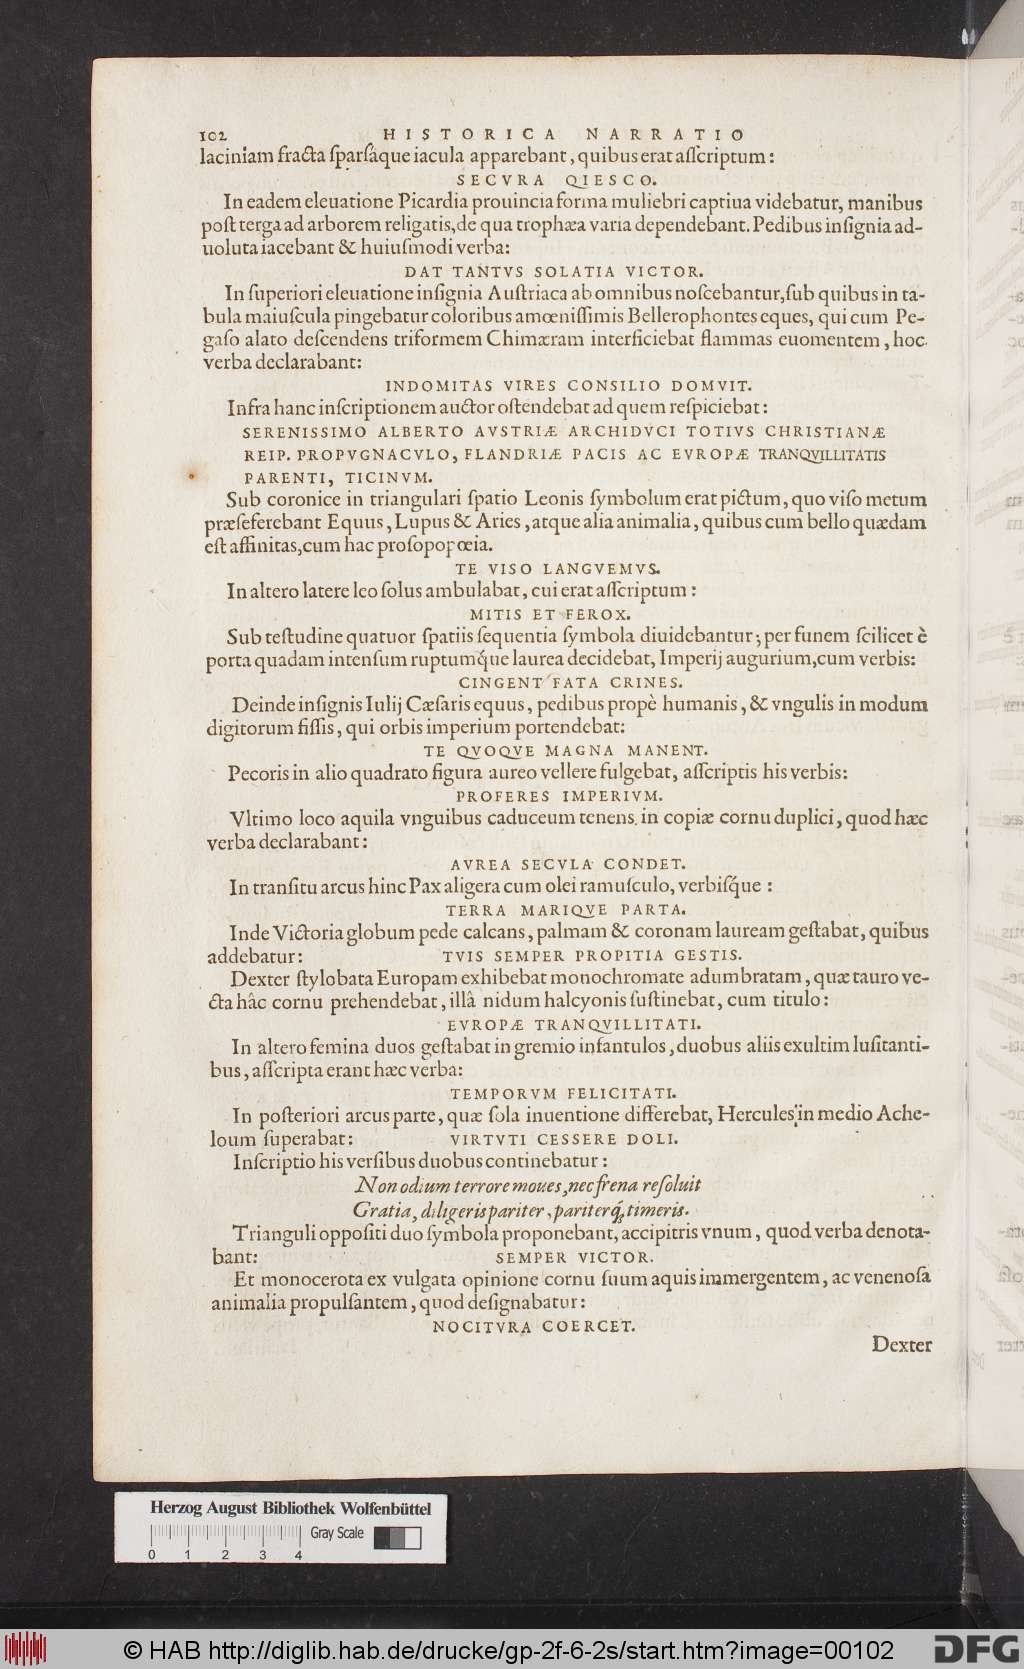 102 HISTORICA NARRATIO
laciniam fracta ſparſáque iacula apparebant, quibus erat aſſcriptum:
SECVRA QIESCO.
In eadem eleuatione Picardia prouincia forma muliebri captiua videbatur, manibus
poſt terga ad arborem religatis, de qua trophæa varia dependebant. Pedibus inſignia ad-
uoluta iacebant & huiuſmodi verba:
DAT TANTVS SOLATIA VICTOR.
In ſuperiori eleuatione inſignia Auſtriaca ab omnibus noſcebantur, ſub quibus in ta-
bula maiuſcula pingebatur coloribus amœniſſimis Bellerophontes eques, qui cum Pe-
gaſo alato deſcendens triformem Chimæram interficiebat flammas euomentem, hoc
verba declarabant:
INDOMITAS VIRES CONSILIO DOMVIT.
Infra hanc inſcriptionem auctor oſtendebat ad quem reſpiciebat:
SERENISSIMO ALBERTO AVSTRIÆ ARCHIDVCI TOTIVS CHRISTIANÆ
REIP. PROPVGNACVLO, FLANDRIÆ PACIS AC EVROPÆ TRANQVILLITATIS
PARENTI, TICINVM.
Sub coronice in triangulari ſpatio Leonis ſymbolum erat pictum, quo viſo metum
præſeferebant Equus, Lupus & Aries, atque alia animalia, quibus cum bello quædam
eſt affinitas, cum hac proſopopœia.
TE VISO LANGVEMVS.
In altero latere leo ſolus ambulabat, cui erat aſſcriptum:
MITIS ET FEROX.
Sub teſtudine quatuor ſpatiis ſequentia ſymbola diuidebantur; per funem ſcilicet è
porta quadam intenſum ruptumq́ue laurea decidebat, Imperij augurium, cum verbis:
CINGENT FATA CRINES.
Deinde inſignis Iulij Cæſaris equus, pedibus propè humanis, & vngulis in modum
digitorum fiſſis, qui orbis imperium portendebat:
TE QVOQVE MAGNA MANENT.
Pecoris in alio quadrato figura aureo vellere fulgebat, aſſcriptis his verbis:
PROFERES IMPERIVM.
Vltimo loco aquila vnguibus caduceum tenens in copiæ cornu duplici, quod hæc
verba declarabant:
AVREA SECVLA CONDET.
In tranſitu arcus hinc Pax aligera cum olei ramuſculo, verbiſq́ue:
TERRA MARIQVE PARTA.
Inde Victoria globum pede calcans, palmam & coronam lauream geſtabat, quibus
addebatur: TVIS SEMPER PROPITIA GESTIS.
Dexter ſtylobata Europam exhibebat monochromate adumbratam, quæ tauro ve-
cta hâc cornu prehendebat, illâ nidum halcyonis ſuſtinebat, cum titulo:
EVROPÆ TRANQVILLITATI.
In altero femina duos geſtabat in gremio infantulos, duobus aliis exultim luſitanti-
bus, aſſcripta erant hæc verba:
TEMPORVM FELICITATI.
In poſteriori arcus parte, quæ ſola inuentione differebat, Hercules in medio Ache-
loum ſuperabat: VIRTVTI CESSERE DOLI.
Inſcriptio his verſibus duobus continebatur:
Non odium terrore moues, nec frena reſoluit
Gratia, diligeris pariter, pariterq́; timeris.
Trianguli oppoſiti duo ſymbola proponebant, accipitris vnum, quod verba denota-
bant: SEMPER VICTOR.
Et monocerota ex vulgata opinione cornu ſuum aquis immergentem, ac venenoſa
animalia propulſantem, quod deſignabatur:
NOCITVRA COERCET.
Dexter
Herzog August Bibliothek Wolfenbüttel
Gray Scale
0 1 2 3 4
© HAB http://diglib.hab.de/drucke/gp-2f-6-2s/start.htm?image=00102
DFG